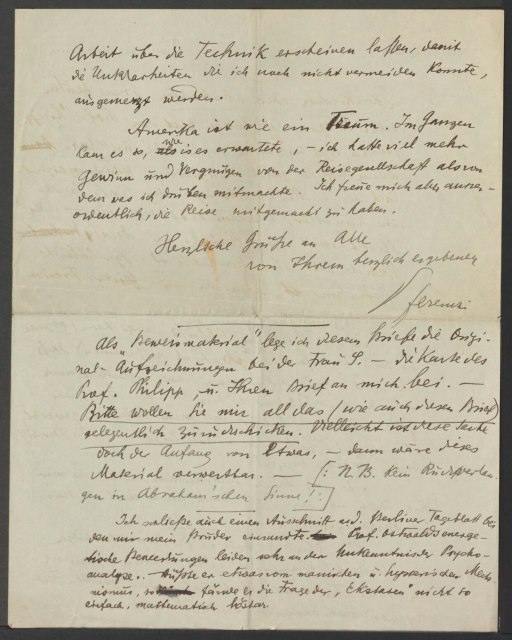 Arbeit über die Technik erscheinen lassen, damit
die Unklarheiten die ich noch nicht vermeiden konnte,
ausgemerzt werden.
Amerika ist wie ein Traum. Im Ganzen
kam es so, wie ich es erwartete, – ich hatte viel mehr
Gewinn und Vergnügen von der Reisegesellschaft als von
dem was ich drüben mitmachte. Ich freue mich aber ausser-
ordentlich, die Reise mitgemacht zu haben.
Herzliche Grüße an Alle
von Ihrem herzlich ergebenen
Ferenczi
Als „Beweismaterial" lege ich diesem Briefe die Origi-
nal-Aufzeichnungen bei der Frau S. – die Karte des
Prof. Philipp, u. Ihren Brief an mich bei. –
Bitte wollen Sie mir all das (wie auch diesen Brief)
gelegentlich zurückschicken. Vielleicht ist diese Sache
doch der Anfang von Etwas, – dann wäre dieses
Material verwertbar. – [: N.B. kein Rückverlan-
gen in Abrahamischen Sinne! :]
Ich schließe auch einen Ausschnitt a. d. Berliner Tageblatt bei
den mir mein Bruder einsandte. Prof. Ostwalds energe-
tische Bemerkungen leiden sehr an der Unkenntnis der Psycho-
analyse. – Wüßte er etwas vom manischen u. hysterischen Mecha-
nismus, so fände er die Frage der „Ekstasen" nicht so
einfach, mathematisch lösbar.